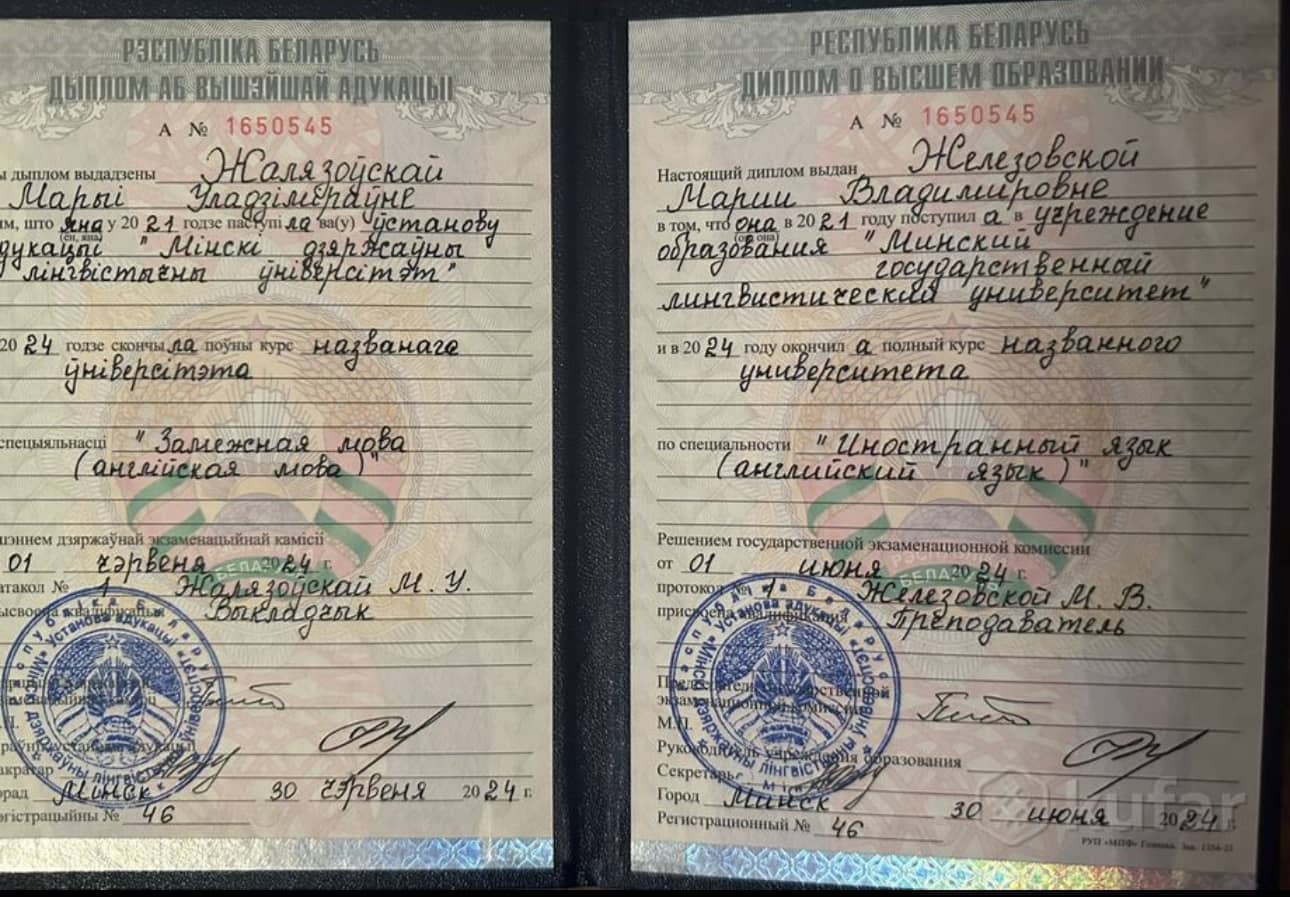 РЭСПУБЛІКА БЕЛАРУСЬ
ДЫПЛОМ АБ ВЫШЭЙШАЙ АДУКАЦЫІ
А № 1650545
ы дыплом выдадзены Жалязоўскай
Марыі Уладзіміраўне
ым, што яна у 2021 годзе паступіла ва(у) ўстанову
(ён, яна)
дукацыі "Мінскі дзяржаўны
лінгвістычны ўніверсітэт"
2024 годзе скончыла поўны курс названага
ўніверсітэта
спецыяльнасці "Замежная мова
(англійская мова)"
шэннем дзяржаўнай экзаменацыйнай камісіі
01 чэрвеня 2024 г.
атакол № 1 Жалязоўскай М. У.
ысвоена кваліфікацыя Выкладчык
акратар
орад Мінск 30 чэрвеня 2024 г.
эгістрацыйны № 46
РЕСПУБЛИКА БЕЛАРУСЬ
ДИПЛОМ О ВЫСШЕМ ОБРАЗОВАНИИ
А № 1650545
Настоящий диплом выдан Железовской
Марии Владимировне
в том, что она в 2021 году поступила в учреждение
(он, она)
образования "Минский
государственный
лингвистический университет"
и в 2024 году окончила полный курс названного
университета
по специальности "Иностранный язык
(английский язык)"
Решением государственной экзаменационной комиссии
от 01 июня 2024 г.
протокол № 1 Железовской М. В.
присвоена квалификация Преподаватель
Председатель государственной
экзаменационной комиссии
М.П.
Руководитель учреждения образования
Секретарь
Город Минск 30 июня 2024 г.
Регистрационный № 46
kufar